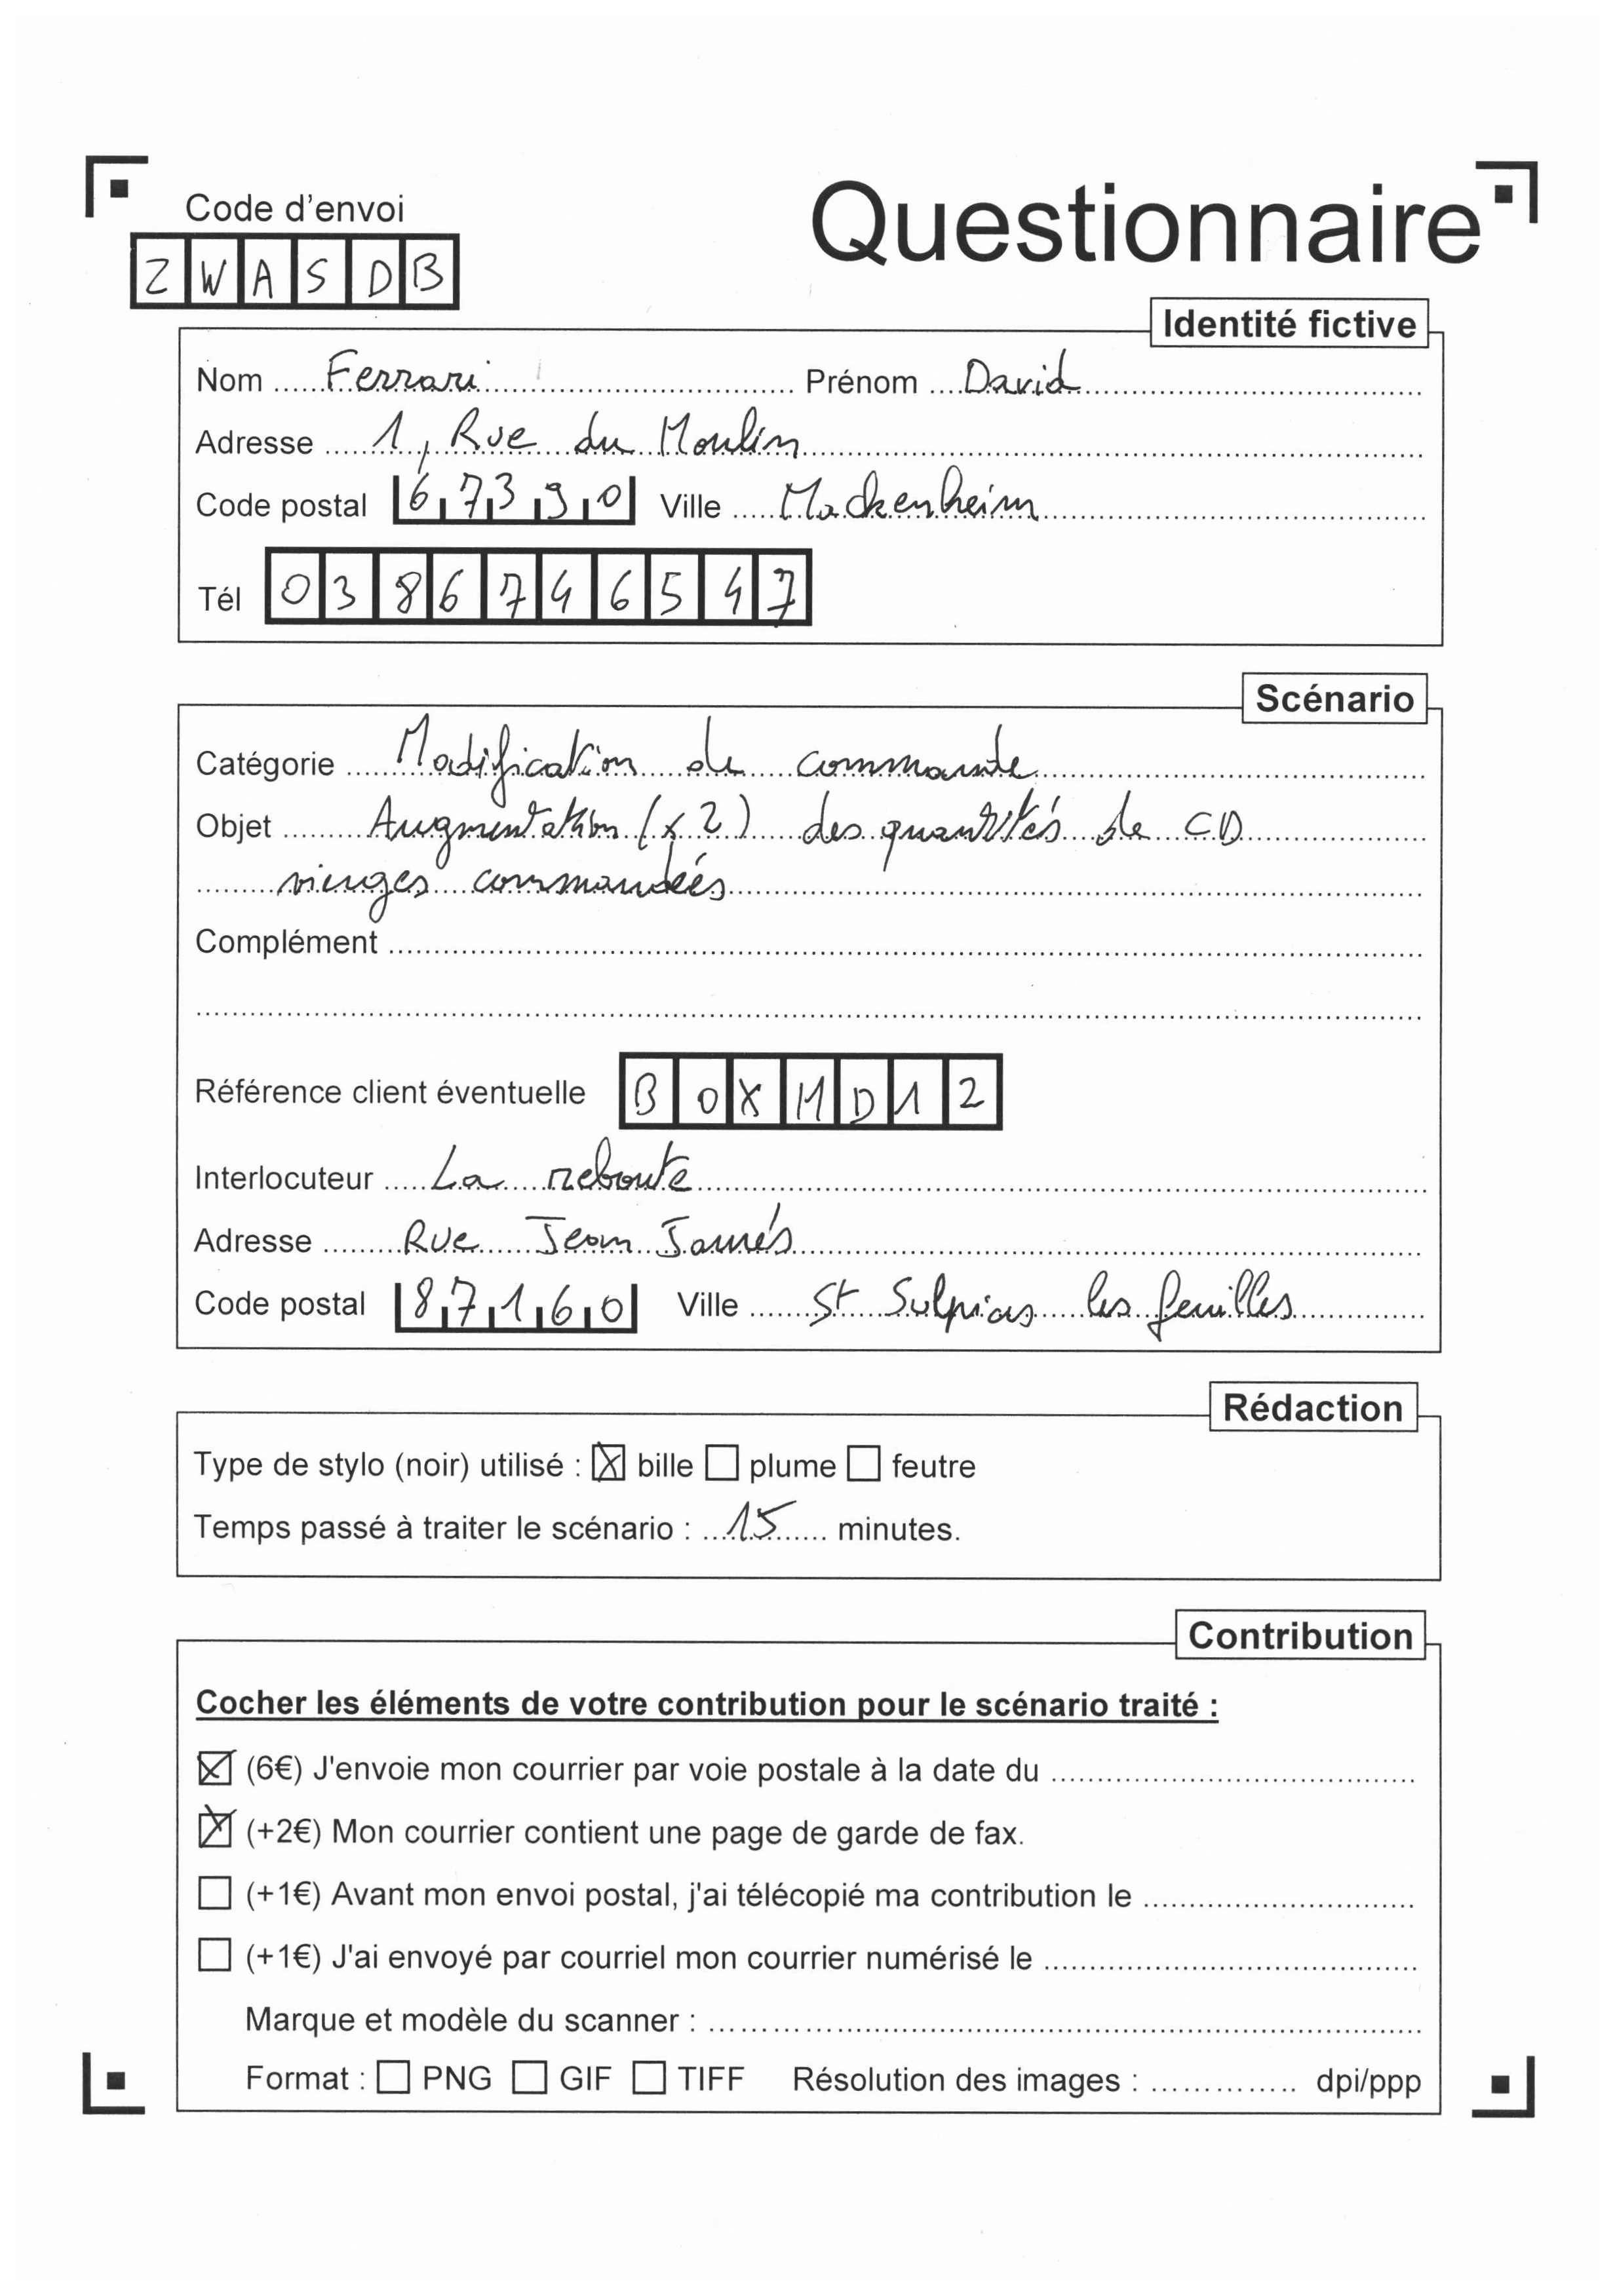 Code d'envoi
Questionnaire
ZWASDB
Identité fictive
Nom ...... Ferrari ...... Prénom .... David ......
Adresse ..... 1, Rue du Moulin ......
Code postal 67390 Ville ..... Mackenheim ......
Tél 0386746547
Scénario
Catégorie .... Modification de commande ......
Objet ...... Augmentation (x2) des quantités de CD
vierges commandées
Complément ......
Référence client éventuelle BOXMD12
Interlocuteur ..... La reboute ......
Adresse ...... Rue Jean Jaurés ......
Code postal 87160 Ville ...... St Sulpicis les feuilles ......
Rédaction
Type de stylo (noir) utilisé : ☒ bille ☐ plume ☐ feutre
Temps passé à traiter le scénario : ... 15 ... minutes.
Contribution
Cocher les éléments de votre contribution pour le scénario traité :
☒ (6€) J'envoie mon courrier par voie postale à la date du ......
☒ (+2€) Mon courrier contient une page de garde de fax.
☐ (+1€) Avant mon envoi postal, j'ai télécopié ma contribution le ......
☐ (+1€) J'ai envoyé par courriel mon courrier numérisé le ......
Marque et modèle du scanner : ......
Format : ☐ PNG ☐ GIF ☐ TIFF Résolution des images : ...... dpi/ppp